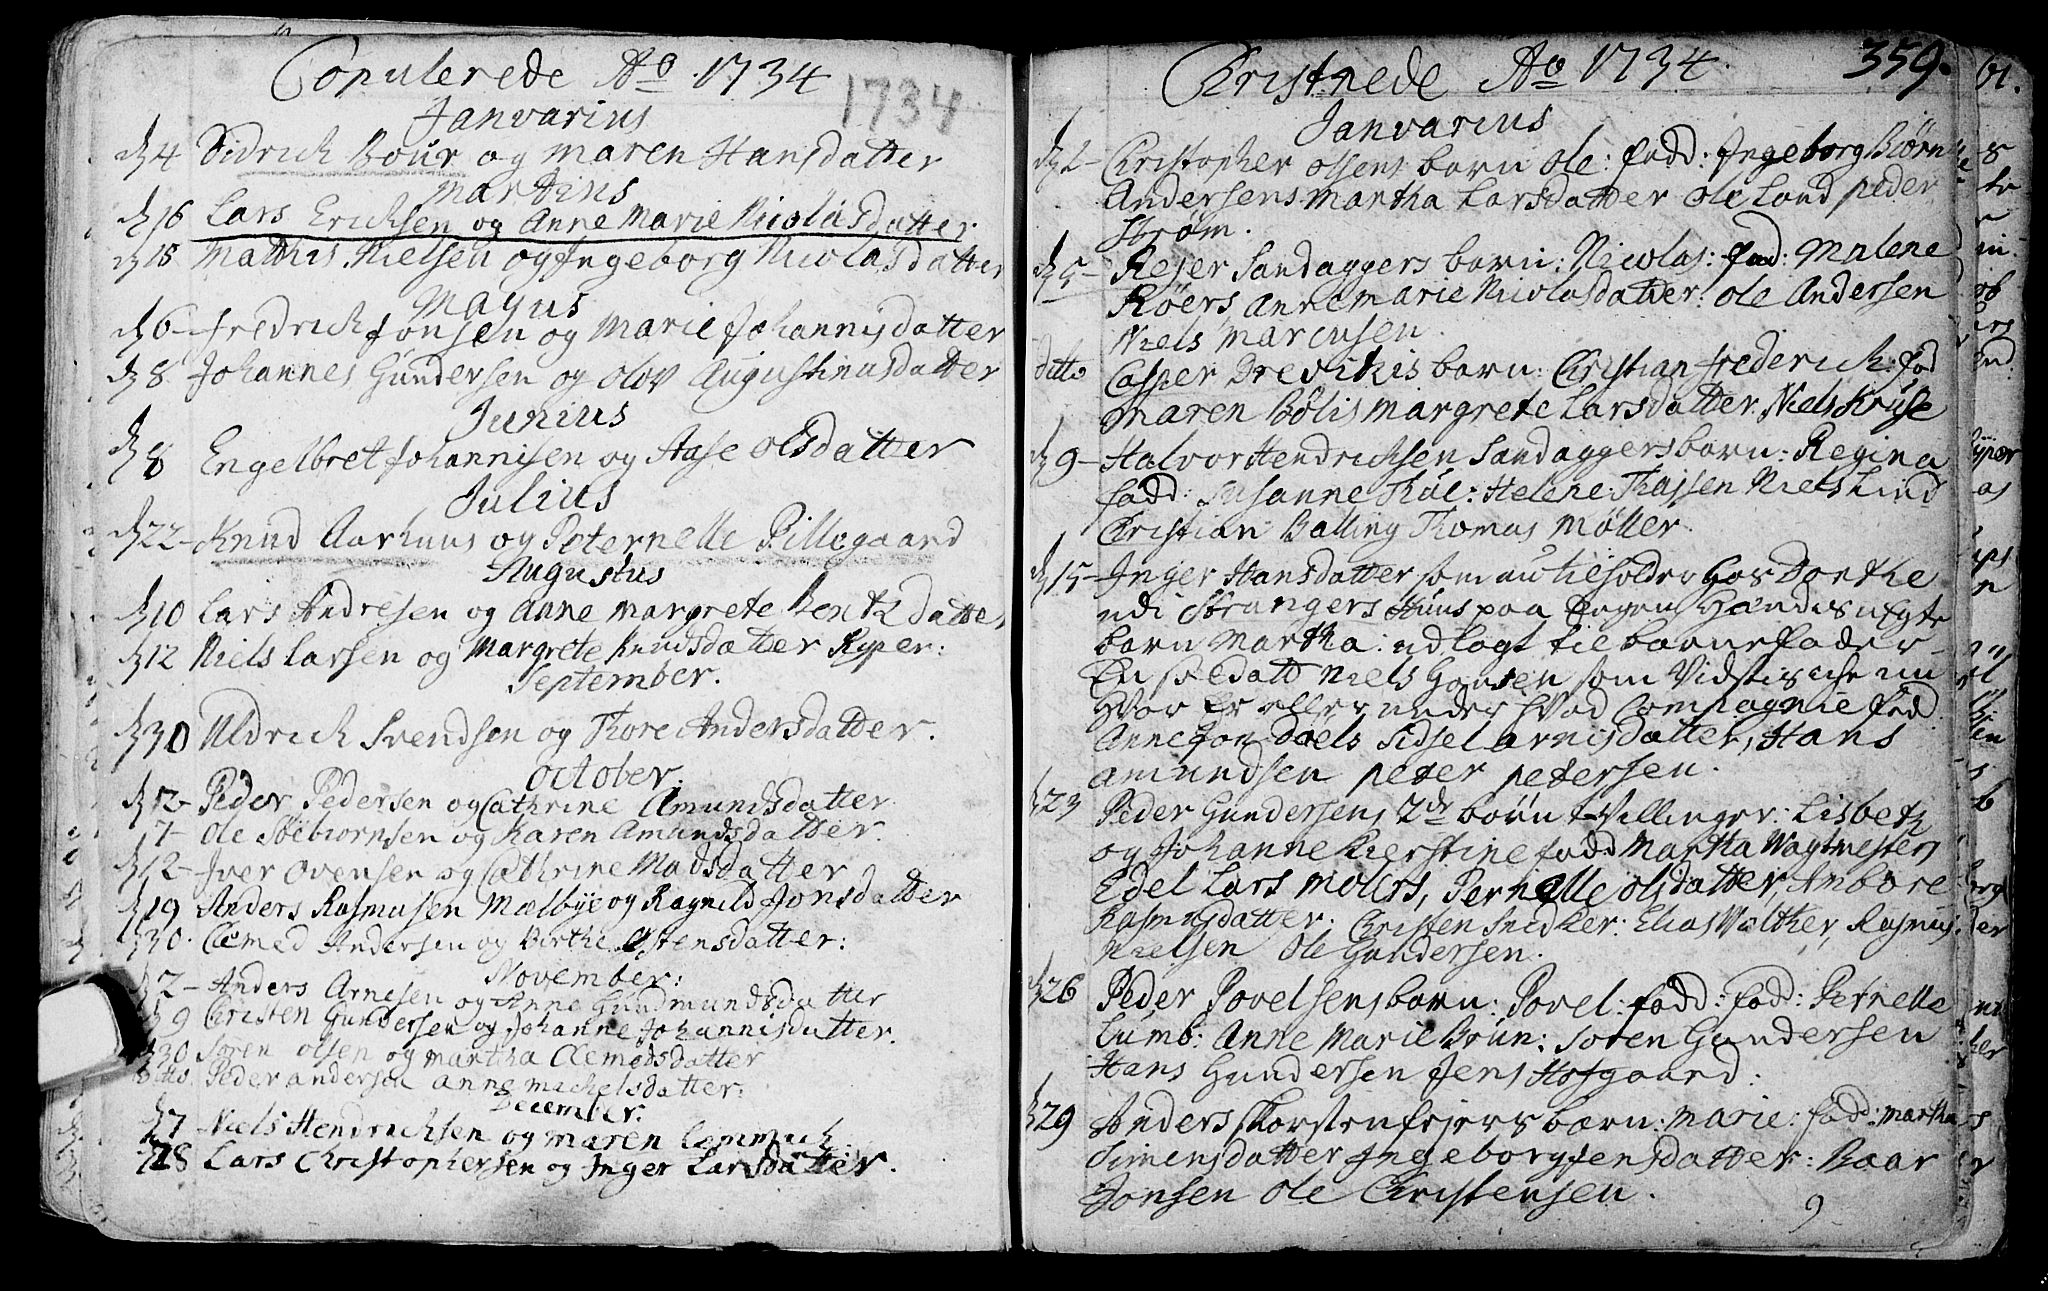 Copulerede Ao 1734
1734
Janvarius
d 4 Didrich Bour og Maren Hansdatter
Martius
d 16 Lars Ericksen og Anne Marie Nicolasdatter
d 18 Mathis Nielsen og Ingeborg Nicolasdatter
Mayus
d 6 Fredrich Jonsen og Marie Johannisdatter
d 8 Johannes Gundersen og Olov Augustinusdatter
Junius
d 8 Engelbret Johannisen og Aase Olsdatter
Julius
d 22 Knud Aarhuus og Peternelle Pillegaard
Augustus
d 10 Lars Andresen og Anne Margrete Bentzdatter
d 12 Niels Larsen og Margrete Knudsdatter Ryper:
September.
d 30 Uldrich Svendsen og Thore Andersdatter.
October.
d 12 Peder Pedersen og Cathrine Amundsdatter
17 Ole Söebiornsen og Karen Amundsdatter.
d 12 Iver Ovensen og Cathrine Madsdatter
d 19 Anders Rasmusen Mælbye og Ragnild Jonsdatter
d 30. Clemed Andersen og Birthe Estensdatter:
November:
d 2 Anders Arnesen og Anne Gudmundsdatter
d 9 Christen Gundersen og Johanne Johannisdatter.
d 30 Søren Olsen og Martha Clemedsdatter
Ditto. Peder Andersen Anne Mickelsdatter:
December.
d 7 Niels Hendrichsen og Maren Lemmich
28 Lars Christophersen og Inger Larsdatter.
Christnede Ao 1734. 359.
Janvarius
d 2 Christopher Olsens barn Ole: fadd: Ingeborg Biørn
Andersens Martha Larsdatter Ole Lond Peder
Strøm.
d 5 Rejer Sandaggers barn: Nicolas: fad: Malene
Røers, Anne Marie Nicolasdatter: Ole Andersen
Niels Marcusen.
ditto Casper Drevikis barn: Christian Frederich: fad
Maren Bolis Margrete Larsdatter. Niels Kruse
d 9 Halvor Hendrichsen Sandaggers barn: Regina
fadd: Susanne Thue: Helene Thassen Niels Lind
Christian Balling Thomas Møller.
d 15 Inger Hansdatter som nu tilholder hos Dorthe
udi Strangers Huus paa Eegen Hændis uegte
barn Martha: udlagt til barnefader
En soldatt Niels Hansen som Vidstis iche nu
Hvor Er eller under hvad Compagnie fad
Anne Jon Doels Sidsel Arnisdatter, Hans
Amundsen Peter Petersen.
d 23 Peder Gundersens 2de børn tvillinger: Lisbeth
og Johanne Kierstine fadd Martha Wagtmesters
Edel Lars Molers, Pernelle Olsdatter, Ambore
Rasmusdatter: Christen Snedker: Elias Walther, Rasmus
Nielsen Ole Gundersen.
d 26 Peder Povelsens barn: Povel: fadd: fad: Pernelle
Lumb: Anne Marie Brun: Soren Gundersen
Hans Gundersen Jens Hofgaard:
d 29 Anders Skorstenfejers barn: Marie: fad: Martha
Simensdatter Ingeborg Jensdatter: Baar
Jonsen Ole Christensen.
9